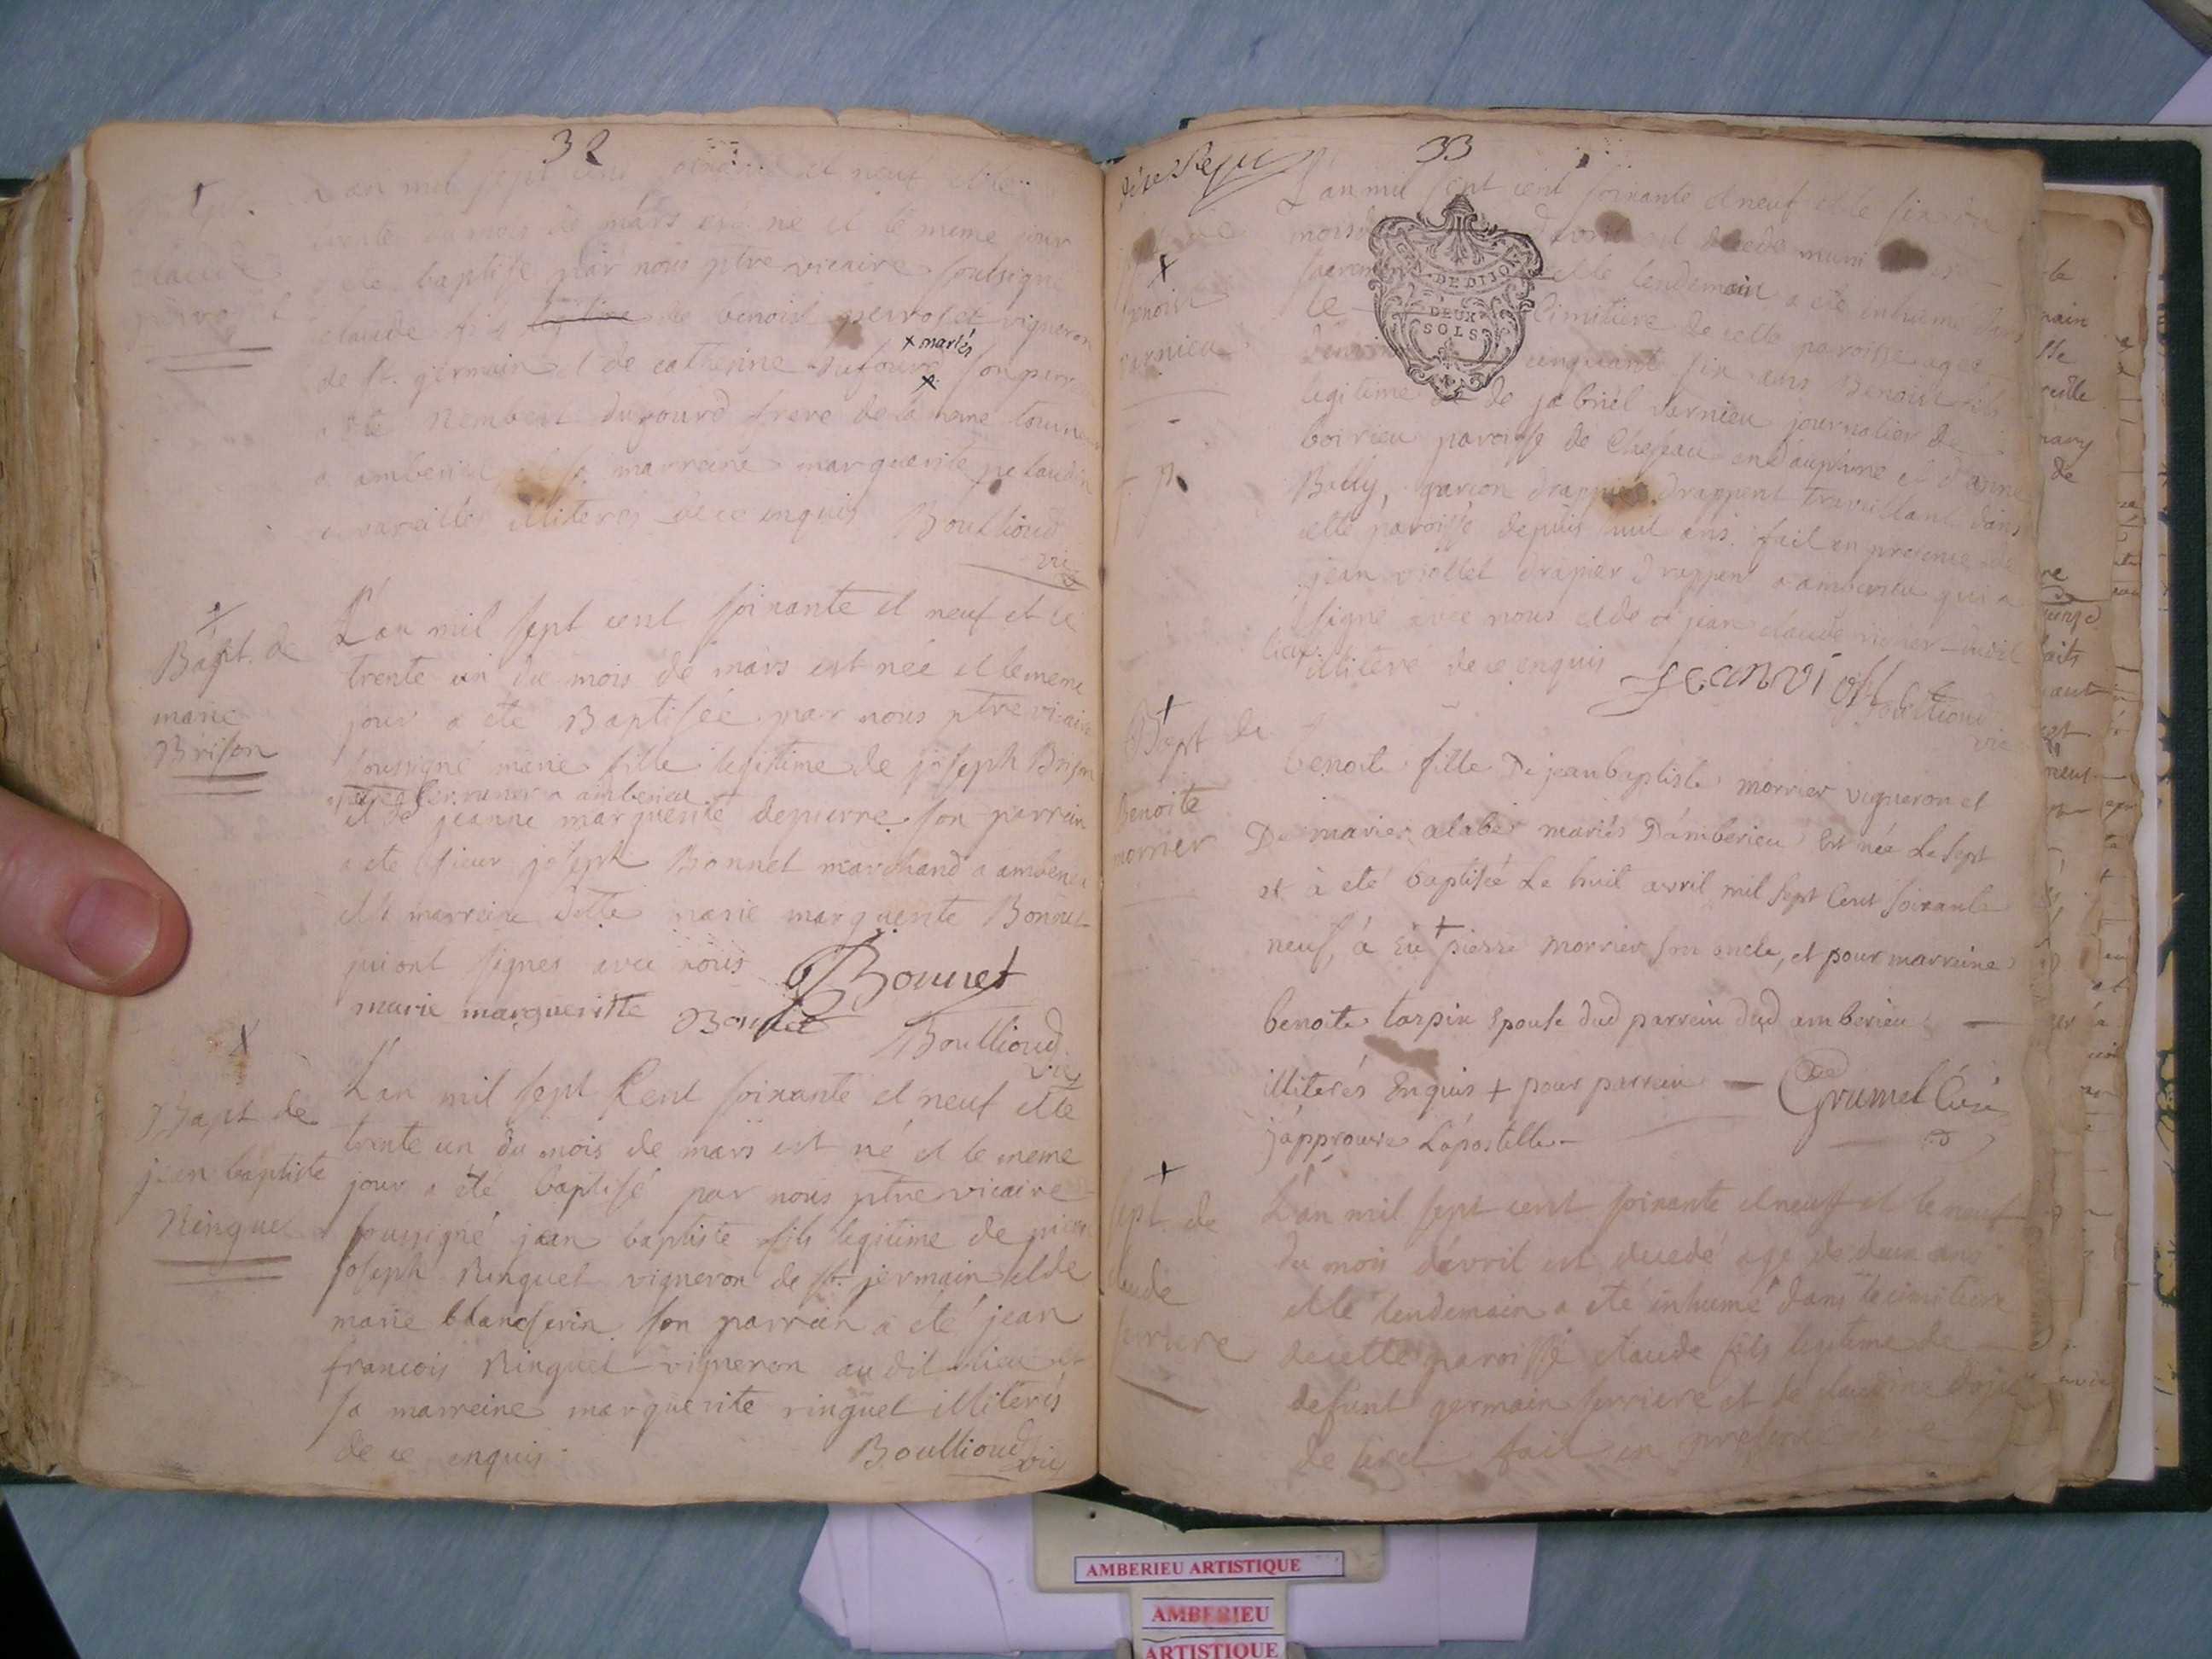 32
L'an mil sept cent soixante et neuf et le
trente du mois de mars est né et le meme jour
a ete baptisé par nous ptre vicaire soussigné
claude fils de benoit perroset vigneron
+ mariés
de st. germain et de catherine dufourd + son parrein
a été Rembert dufourd frere de la meme
a amberieu et sa marreine marguerite
illiteres de ce enquis Boullioud
vic
Bapt. de
marie
Brison
L'an mil sept cent soixante et neuf et le
trente un du mois de mars est née et le meme
jour a été Baptisée par nous ptre vicaire
soussigné marie fille legitime de joseph Brison
a amberieu
et de jeanne marguerite depierre son parrein
a ete sieur joseph Bonnet marchand a amberieu
et sa marreine marie marguerite Bonnet
qui ont signes avec nous Bonnet
marie margueritte Bonnet
Boullioud
vic
Bapt de
jean baptiste
Ringuet
L'an mil sept Cent soixante et neuf et le
trente un du mois de mars est né et le meme
jour a été baptisé par nous ptre vicaire
soussigné jean baptiste fils legitime de pierre
joseph Ringuet vigneron de st. germain et de
marie blancferin son parrein a été jean
francois Ringuet vigneron audit lieu et
sa marreine marguerite ringuet illiterés
de ce enquis
Boullioud vic
33
L'an mil sept cent soixante et neuf et le six du
mois d'avril est decedé muni des
sacrements et le lendemain a eté inhumé dans
le cimitiere de cette paroisse agé
cinquante six ans Benoit fils
legitime de jabriel varnieu journalier de
boirieu paroisse de Chezeau en dauphiné et d'anne
Billy, garcon drappier drappent travaillant dans
cette paroisse depuis huit ans fait en presence de
jean viollet drapier drappent a amberieu qui a
signé avec nous et de jean claude
illiteré de ce enquis jean viollet
Boullioud
vic
GEN. DE DIJON
DEUX
SOLS
benoit
varnieu
Bapt de
Benoite
morrier
benoite fille De jean baptiste morrier vigneron et
De marie alabe mariés D'amberieu est née le sept
et à eté baptisée le huit avril mil sept Cent soixante
neuf, à eü + pierre morrier son oncle, et pour marreine
benoite tarpin Epouse dud parrein dud amberieu —
illiterés Enquis + pour parrein — Grumet Curé
j'approuve L'apostille —
Sept. de
claude
serriere
L'an mil sept cent soixante et neuf et le neuf
du mois d'avril est decedé agé de deux ans
et le lendemain a eté inhumé dans le cimitiere
de cette paroisse claude fils legitime de
defunt germain serriere et de claudine
fait en presence
AMBERIEU ARTISTIQUE
AMBERIEU
ARTISTIQUE